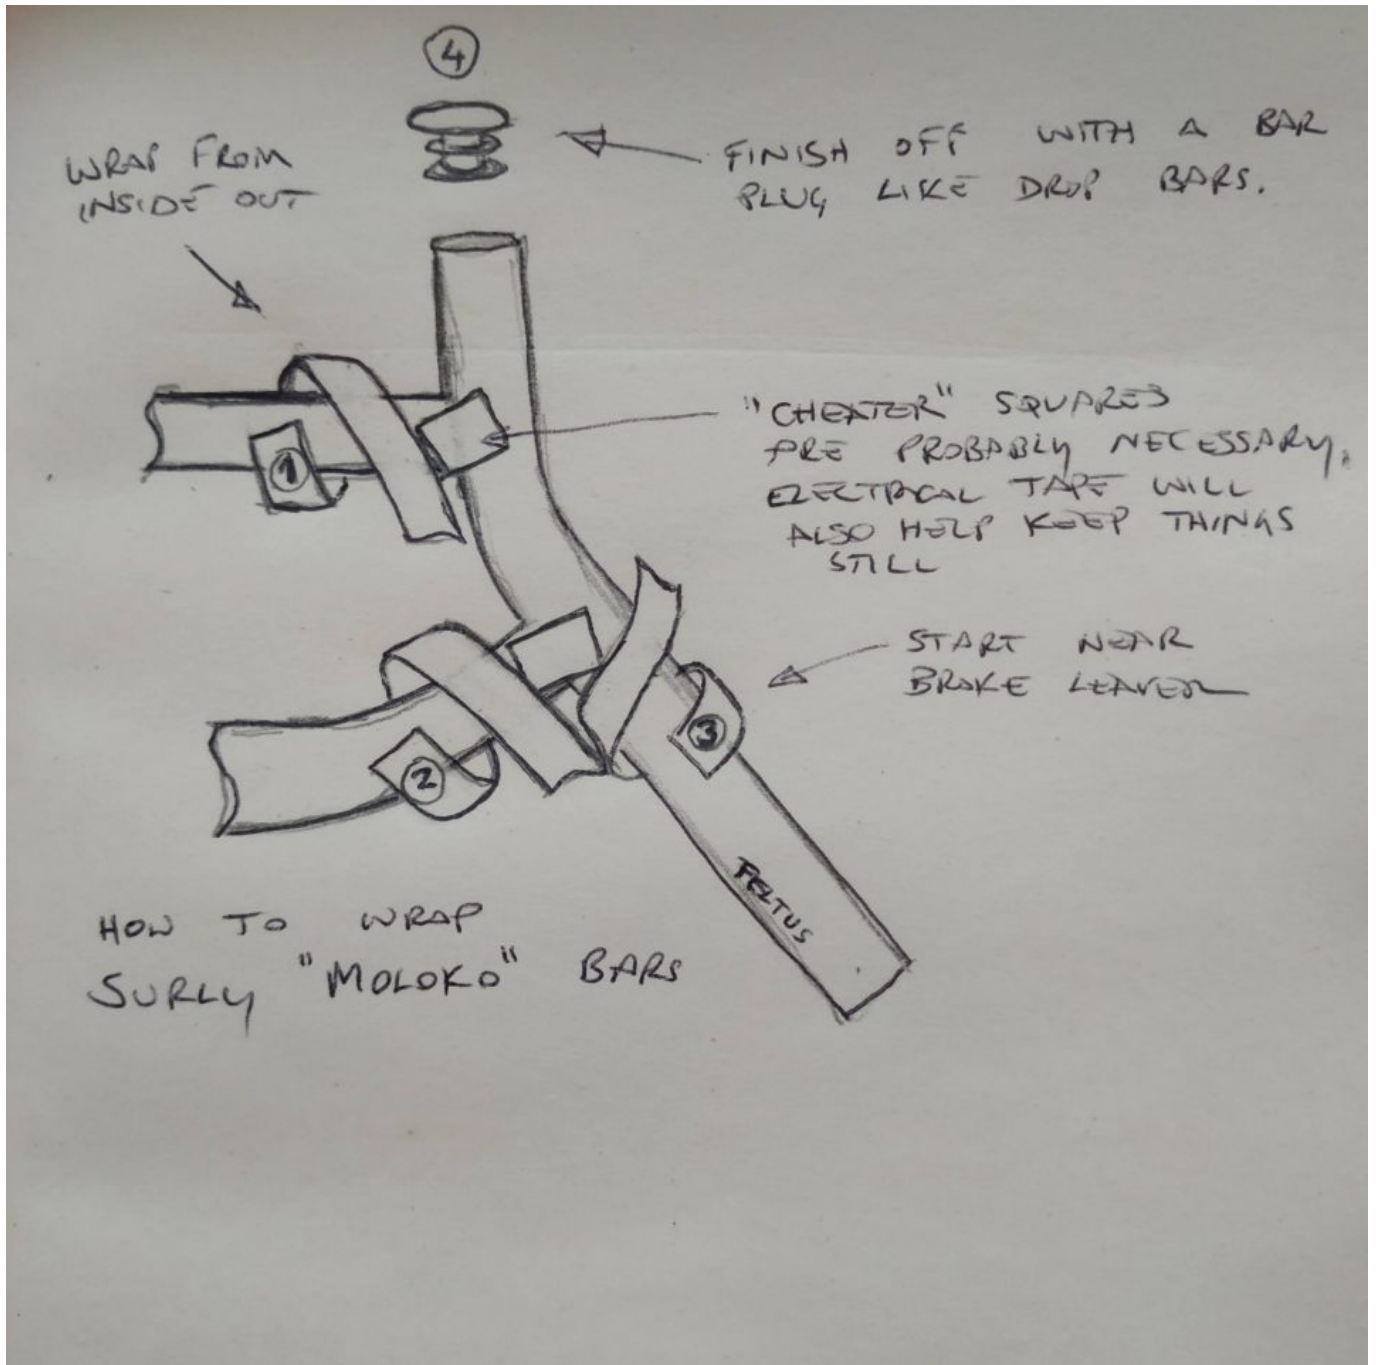 4
WRAP FROM
INSIDE OUT
FINISH OFF WITH A BAR
PLUG LIKE DROP BARS.
1
"CHEATER" SQUARES
ARE PROBABLY NECESSARY.
ELECTRICAL TAPE WILL
ALSO HELP KEEP THINGS
STILL
START NEAR
BRAKE LEAVER
3
2
FELTUS
HOW TO WRAP
SURLY "MOLOKO" BARS